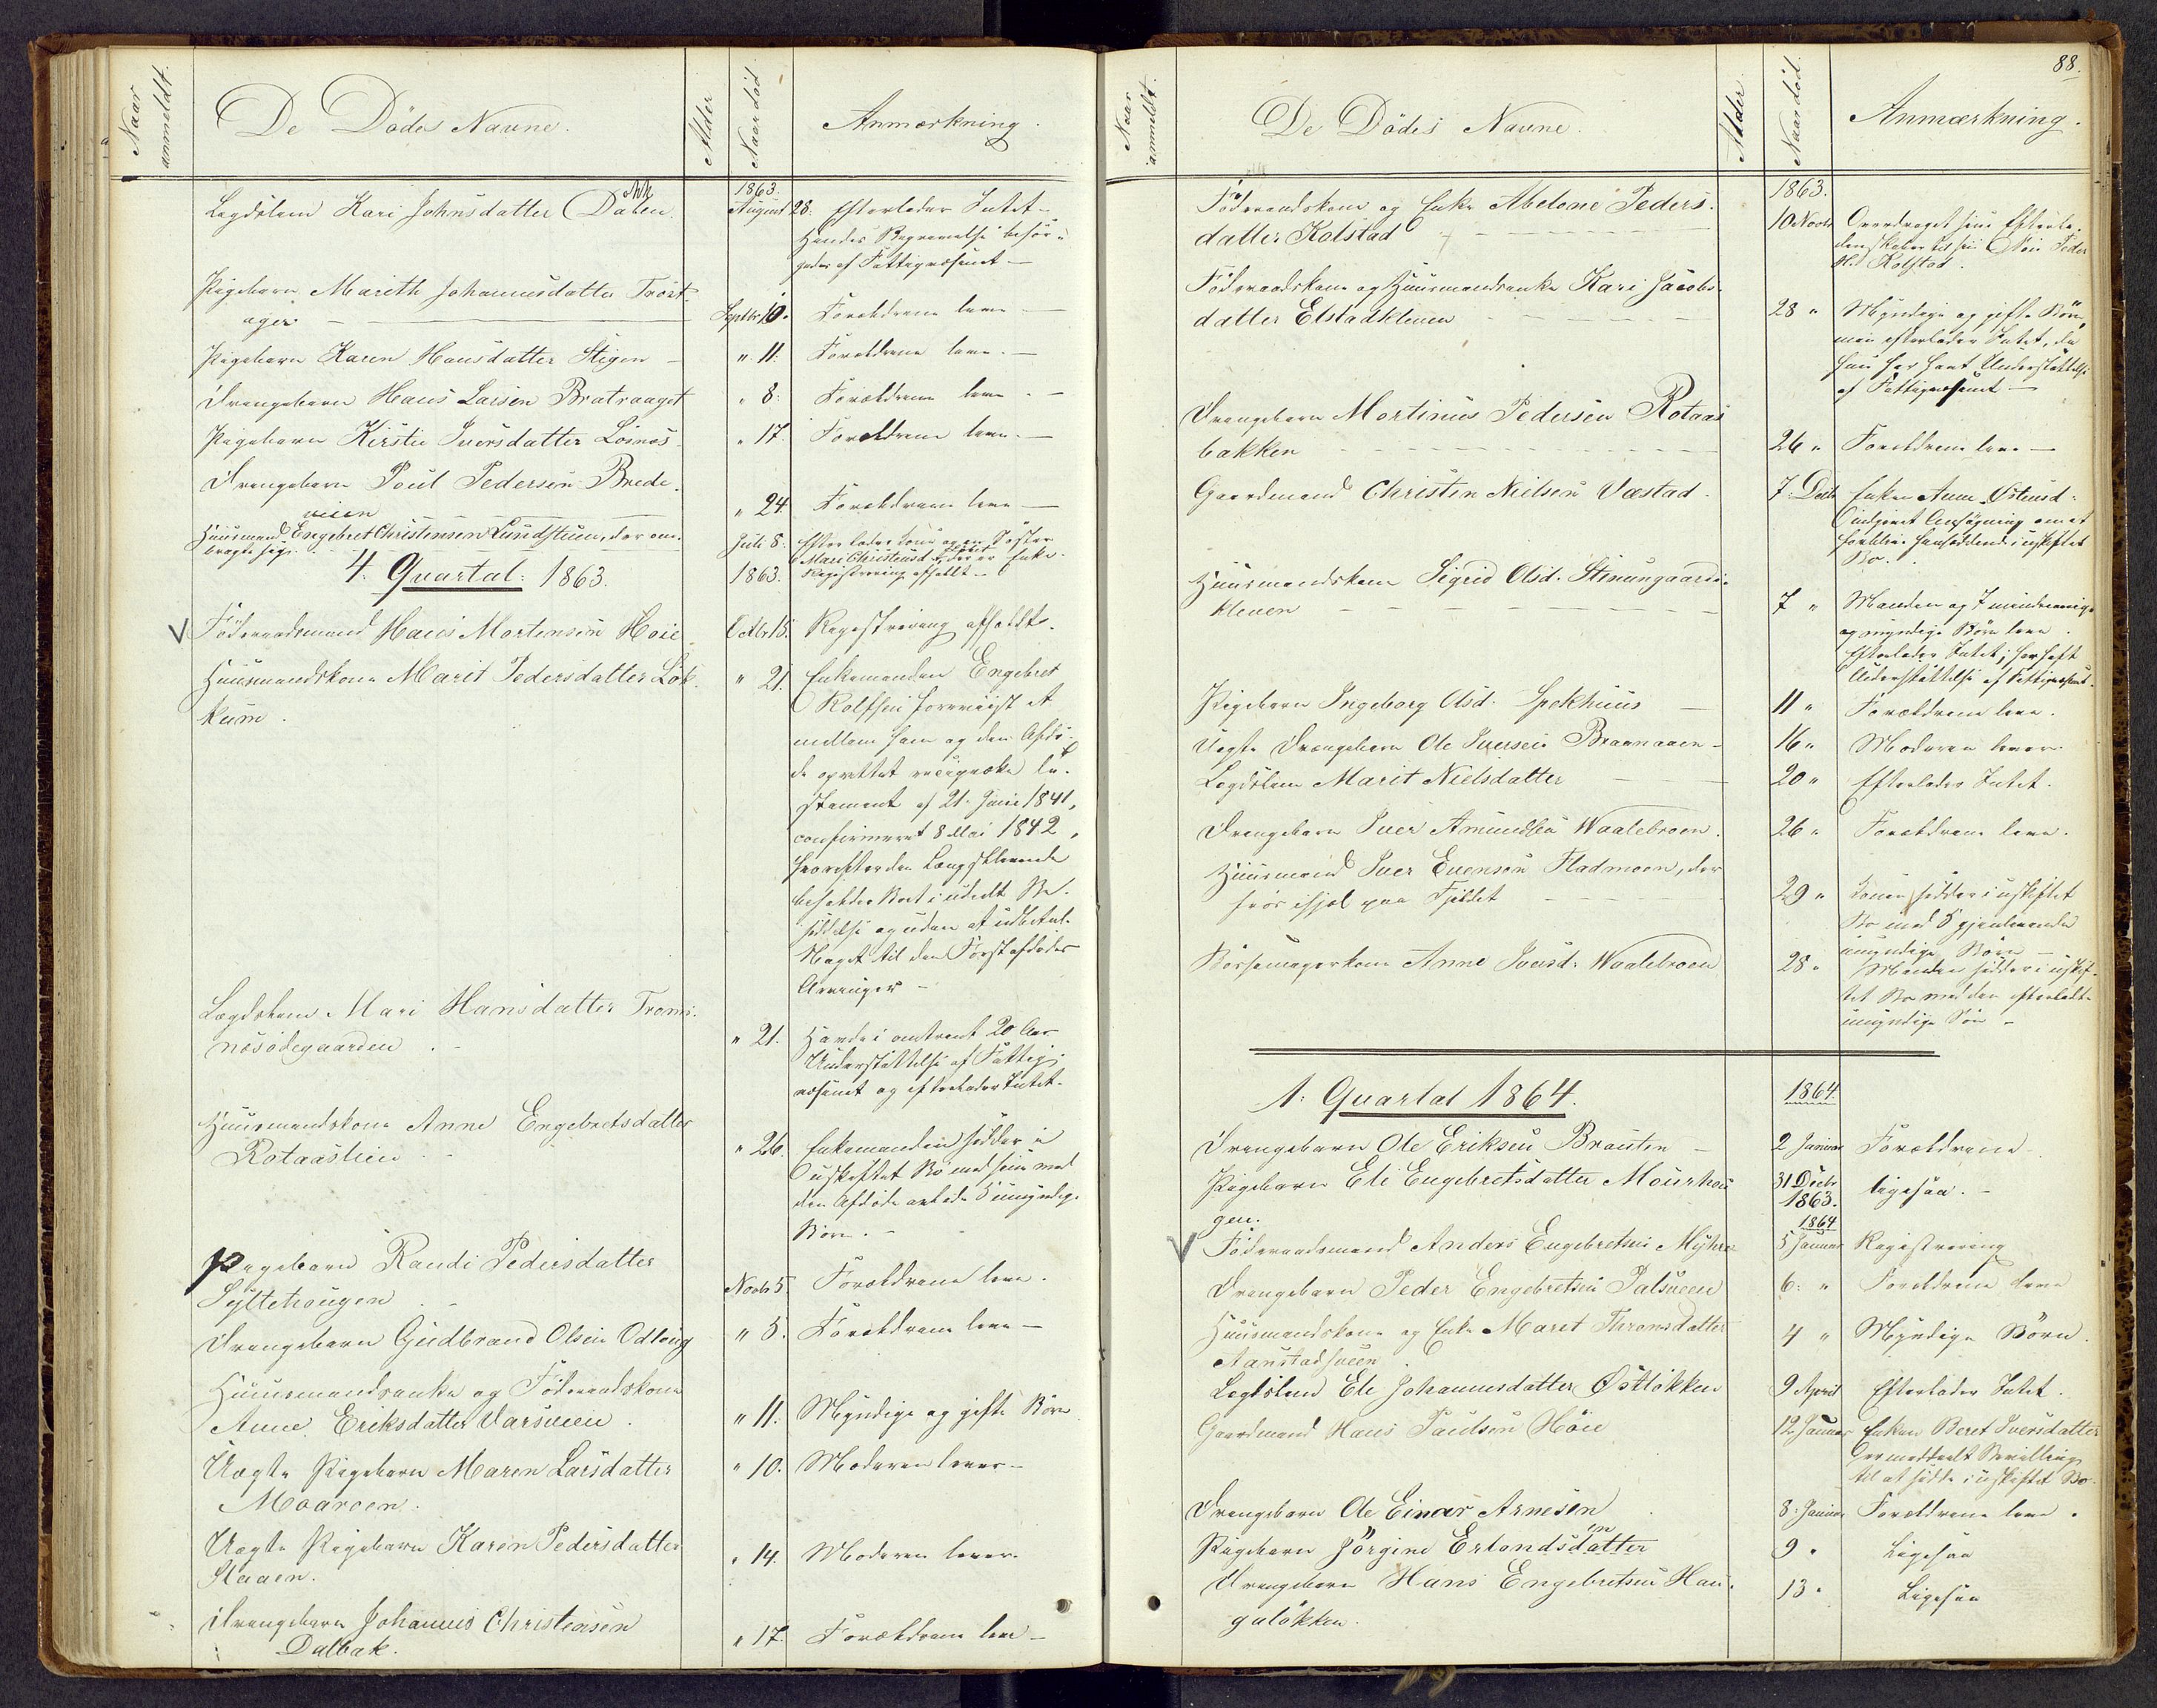 Naar anmeldt.
De Dödes Navne.
Alder
Naar död
Anmærkning.
1863.
Legdslem Kari Johnsdatter Dahlen
August 28. Efterlader Intet.
Hendes Begravelse besör-
gedes af Fattigvæsenet
Pigebarn Marith Johannesdatter Trost-
ager
Septbr 10. Forældrene leve
Pigebarn Karen Hansdatter Stigen
" 11. Forældrene leve.
Drengebarn Hans Larsen Bratraaget
" 8. Forældrene leve.
Pigebarn Kirstie Iversdatter Lösnæs
" 17. Forældrene leve.
Drengebarn Poul Pedersen Brede-
veien
" 24. Forældrene leve
Huusmand Engebret Christensen Lundstuen, der om-
bragte sig.
Juli 8. Efterlader Kone og en Söster
Mari Christensd. der er Enke.
4. Quartal: 1863.
1863. Registrering afholdt
V Föderaadsmand Hans Mortensen Höie
Octbr 15. Registrering afholdt.
Huusmandskone Marit Pedersdatter Lök-
kum.
" 21. Enkemanden Engebret
Rolfsen foreviist et
mellem ham og den Afdö-
de oprettet reciproke Te-
stament af 21 Juni 1841,
confirmeret 8 Mai 1842,
hvorefter den Længstlevende
beholder Boet i udeelt Be-
siddelse og uden at udbetale
Noget til den Förstafdödes
Arvinger
Lægdslem Mari Hansdatter Troms-
næsödegaarden
" 21. Havde i omtrent 20 Aar
Understöttelse af Fattig-
væsenet og efterlader Intet.
Huusmandskone Anne Engebretsdatter
Rotaaslien
" 26. Enkemanden sidder i
uskiftet Bo med sine med
den Afdöde avlede 5 umyndige
Börn.
Pigebarn Randi Pedersdatter
Syltehaugen
Novbr 5. Forældrene leve.
Drengebarn Gudbrand Olsen Odloug
" 5. Forældrene leve
Huusmandsenke og Föderaadskone
Anne Eriksdatter Varsveen.
" 11. Myndige og gifte Börn
Uægte Pigebarn Maren Larsdatter
Moaroen.
" 10. Moderen lever
Uægte Pigebarn Karen Pedersdatter
Slaaen.
" 14. Moderen lever.
Drengebarn Johannes Christensen
Dalbak.
" 17. Forældrene leve
88.
Naar anmeldt.
De Dödes Navne.
Alder
Naar död.
Anmærkning.
1863.
Föderaadskone og Enke Abelone Peders-
datter Kolstad
10 Novbr Overdraget sine Efterla-
denskaber til sin Peder
Kolstad.
Föderaadskone og Huusmandsenke Kari Jacobs-
datter Elstadkleven
28 " Myndige og gifte Börn,
men efterlader Intet, da
hun har havt Understöttelse
af Fattigvæsenet
Drengebarn Mortinus Pedersen Rotaas
bakken
26 " Forældrene leve
Gaardmand Christen Nielsen Væstad.
7 Decbr Enken Anne Östensd.
indgivet Ansögning om at
forblive hensiddende i uskiftet
Bo.
Huusmandskone Sigrid Olsd. Stenumgaards-
kleven
7 " Manden og 7 mindreaarige
og myndige Börn leve.
Efterlader Intet; har havt
Understöttelse af Fattigvæsenet.
Pigebarn Ingeborg Olsd. Spekhuus
11 " Forældrene leve.
Uægte Drengebarn Ole Iversen Braanaaen
16 " Moderen lever
Legdslem Marit Nielsdatter
20 " Efterlader Intet.
Drengebarn Iver Amundsen Waalebroen.
26 " Forældrene leve.
Huusmand Iver Evensen Fladmoen, der
frös ihjel paa Fjeldet
29 " Konen sidder i uskiftet
Bo med 5 gjenlevende
umyndige Börn
Börsemagerkone Anne Iversd. Waalebroen
28 " Manden sidder i uskif-
tet Bo med den efterladte
umyndige Sön
1. Quartal 1864.
1864.
Drengebarn Ole Eriksen Brausten
2 Januar Forældrene
Pigebarn Eli Engebretsdatter Mourhou
gen.
31 Decbr 1863. ligesaa.
1864
V Föderaadsmand Anders Engebretsen Myhre
5 Januar Registrering
Drengebarn Peder Engebretsen Palsveen
6. " Forældrene leve
Huusmandskone og Enke Maret Thronsdatter
Aanstadsveen
4 " Myndige Börn.
Legdslem Eli Johannesdatter Östlökken
9 April Efterlader Intet.
Gaardmand Hans Paulsen Höie
12 Januar Enken Beret Iversdatter
er meddeelt Bevilling
til at sidde i uskiftet Bo.
Drengebarn Ole Einar Arnesen
8. Januar Forældrene leve.
Pigebarn Jörgine Erlandsdatter
en
9 " Ligesaa
Drengebarn Hans Engebretsen Hau-
galökken.
13 " Ligesaa